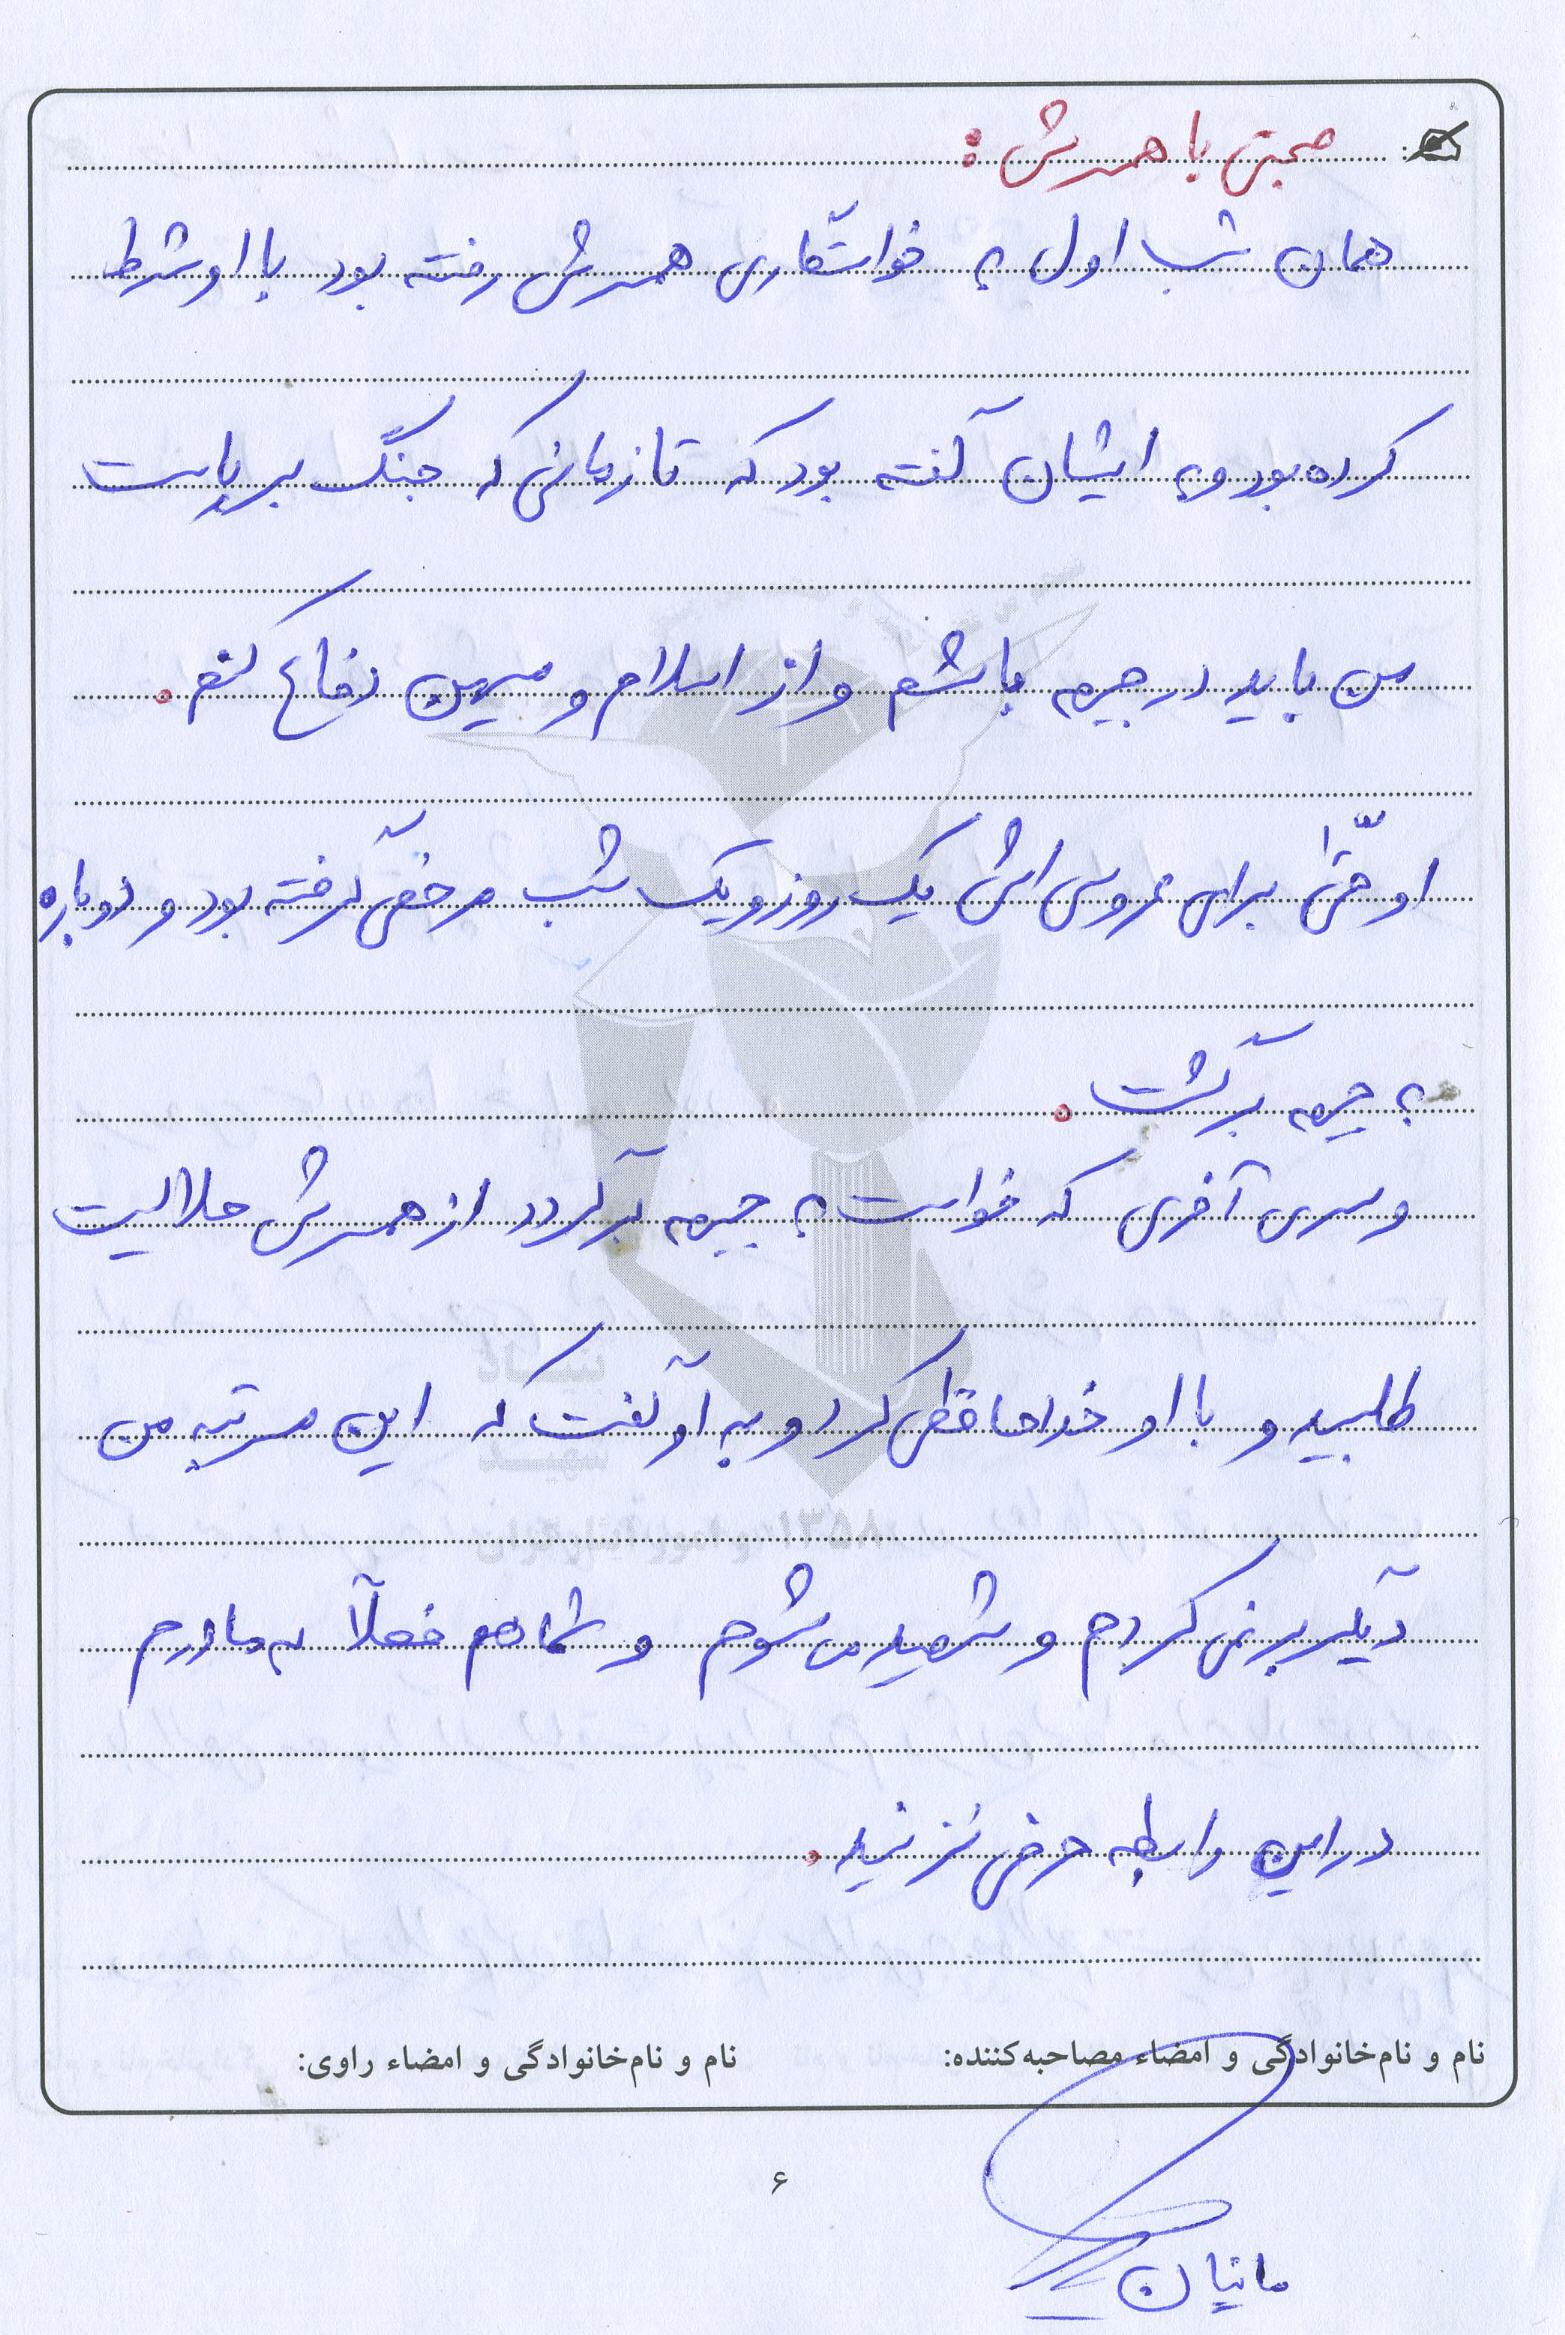 صحبتی با همسرش:
همان شب اول به خواستگاری همسرش رفته بود با او شرط
کرده بود و به ایشان گفته بود که تا زمانی که جنگ برپاست
من باید در جبهه باشم و از اسلام و میهن دفاع کنم.
او حتّی برای عروسی اش یک روز و یک شب مرخصی گرفته بود و دوباره
به جبهه برگشت.
و سری آخری که خواست به جبهه برگردد از همسرش حلالیت
طلبید و با او خداحافظی کرد و به او گفت که این مرتبه من
دیگر برنمی گردم و شهید می شوم و شما هم فعلاً به مادرم
در این رابطه حرفی نزنید.
نام و نام‌خانوادگی و امضاء مصاحبه‌کننده: نام و نام‌خانوادگی و امضاء راوی:
۶
مانیان
بنیاد
شهید
۱۳۵۸